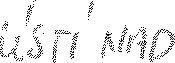 ÚSTÍ NAD